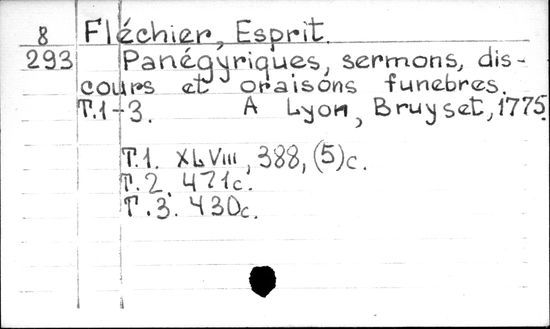 8 Fléchier, Esprit.
293 Panégyriques, sermons, dis-
cours et oraisons funebres.
T.1-3. A Lyon, Bruyset, 1775.
T.1. XLVIII, 388, (5)c.
T.2. 471c.
T.3. 430c.